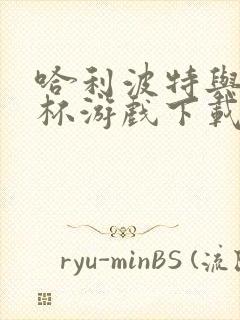 哈利波特與
杯游戲下載
ryu-minBS (流